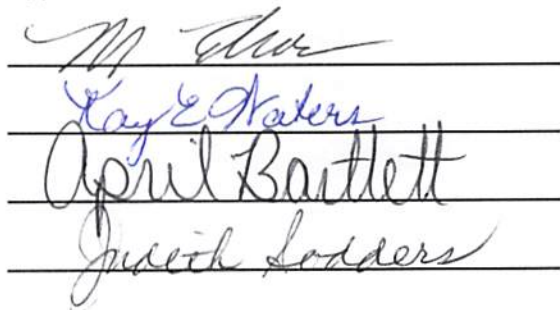 M
Kay E Waters
April Bartlett
Judith Sodders